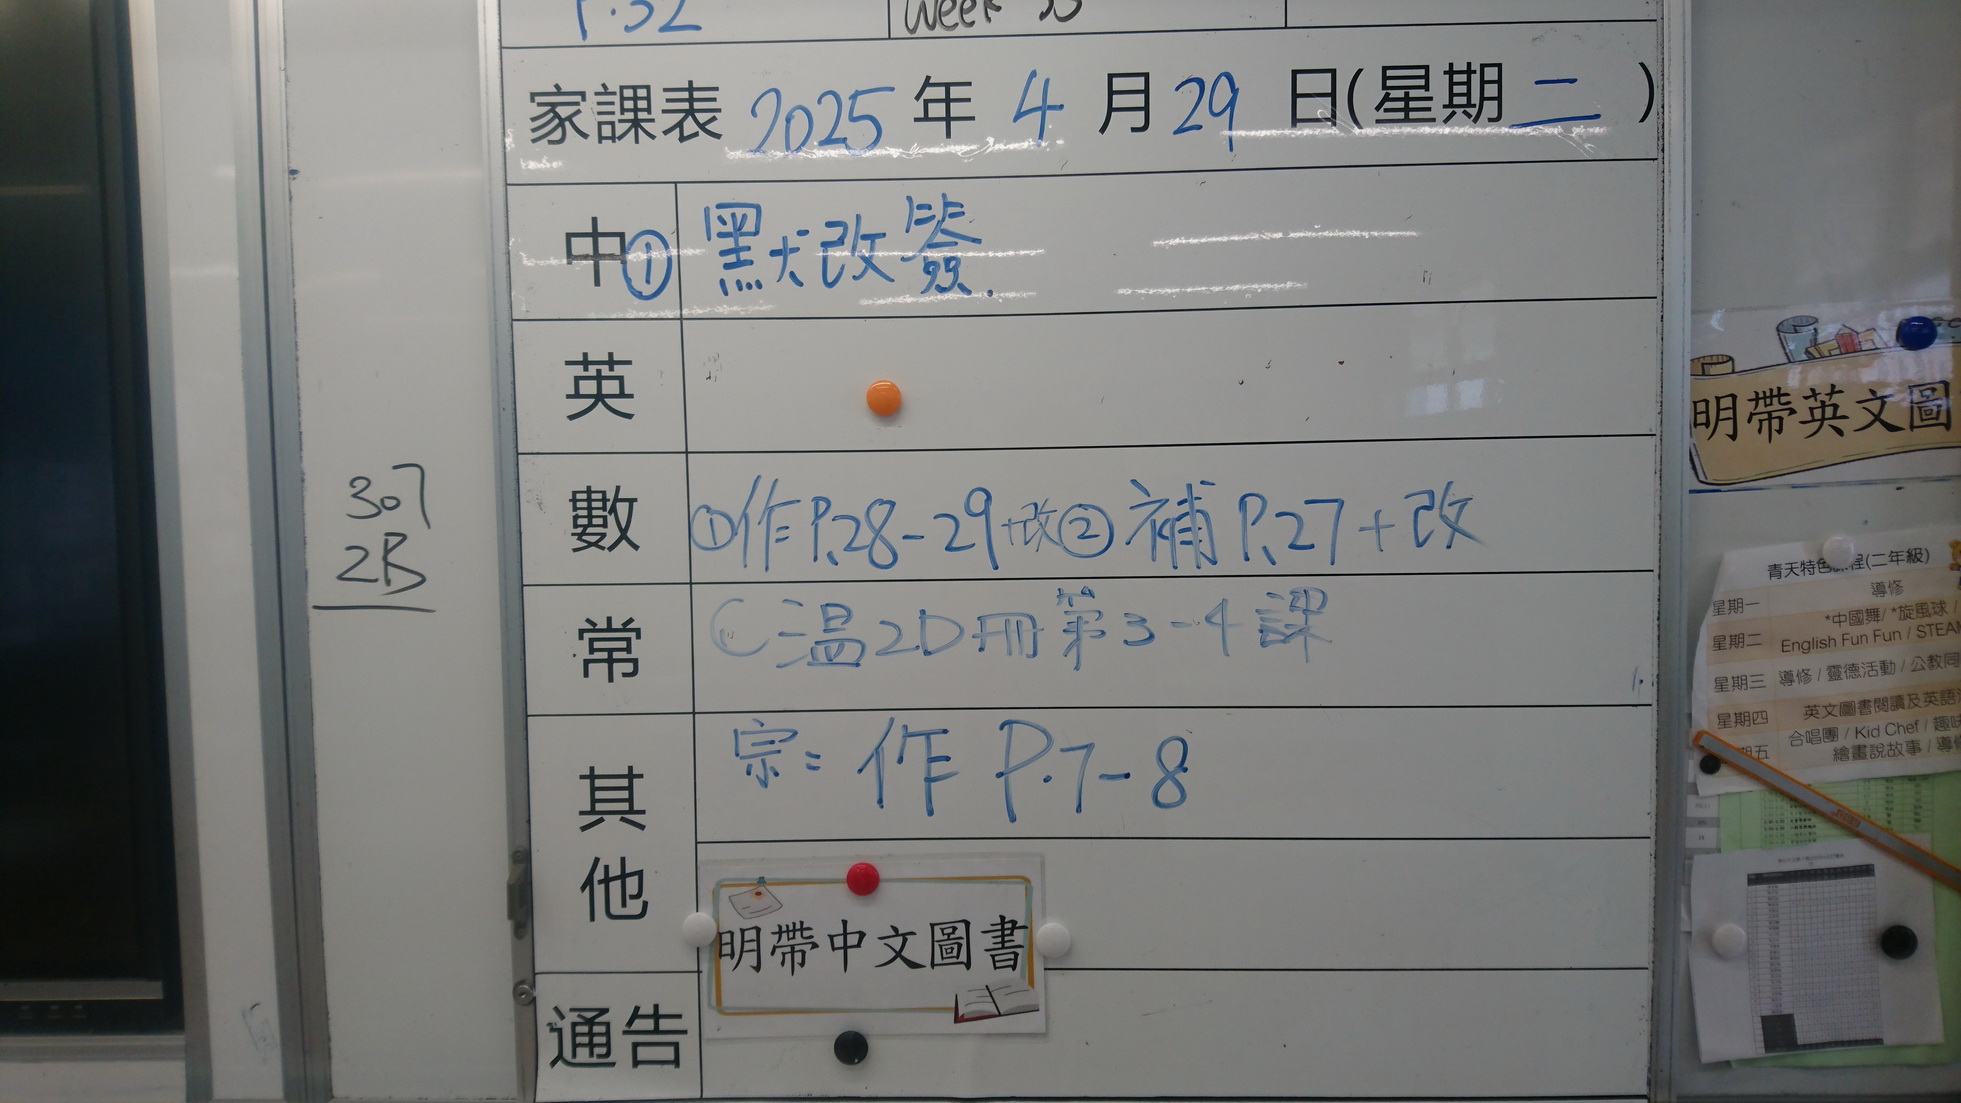 P.32
Week 33
家課表 2025 年 4 月 29 日(星期 二 )
中 ① 默改簽.
英
數 ①作P.28-29+改②補P.27+改
常 溫2D冊第3-4課
其他 宗: 作 P.7-8
明帶中文圖書
通告
307
2B
明帶英文圖
青天特色課程(二年級)
星期一 導修
星期二 *中國舞/ *旋風球 /
English Fun Fun / STEAM
星期三 導修 / 靈德活動 / 公教同
星期四 英文圖書閱讀及英語
期五 合唱團 / Kid Chef / 趣味
繪畫說故事 / 導修